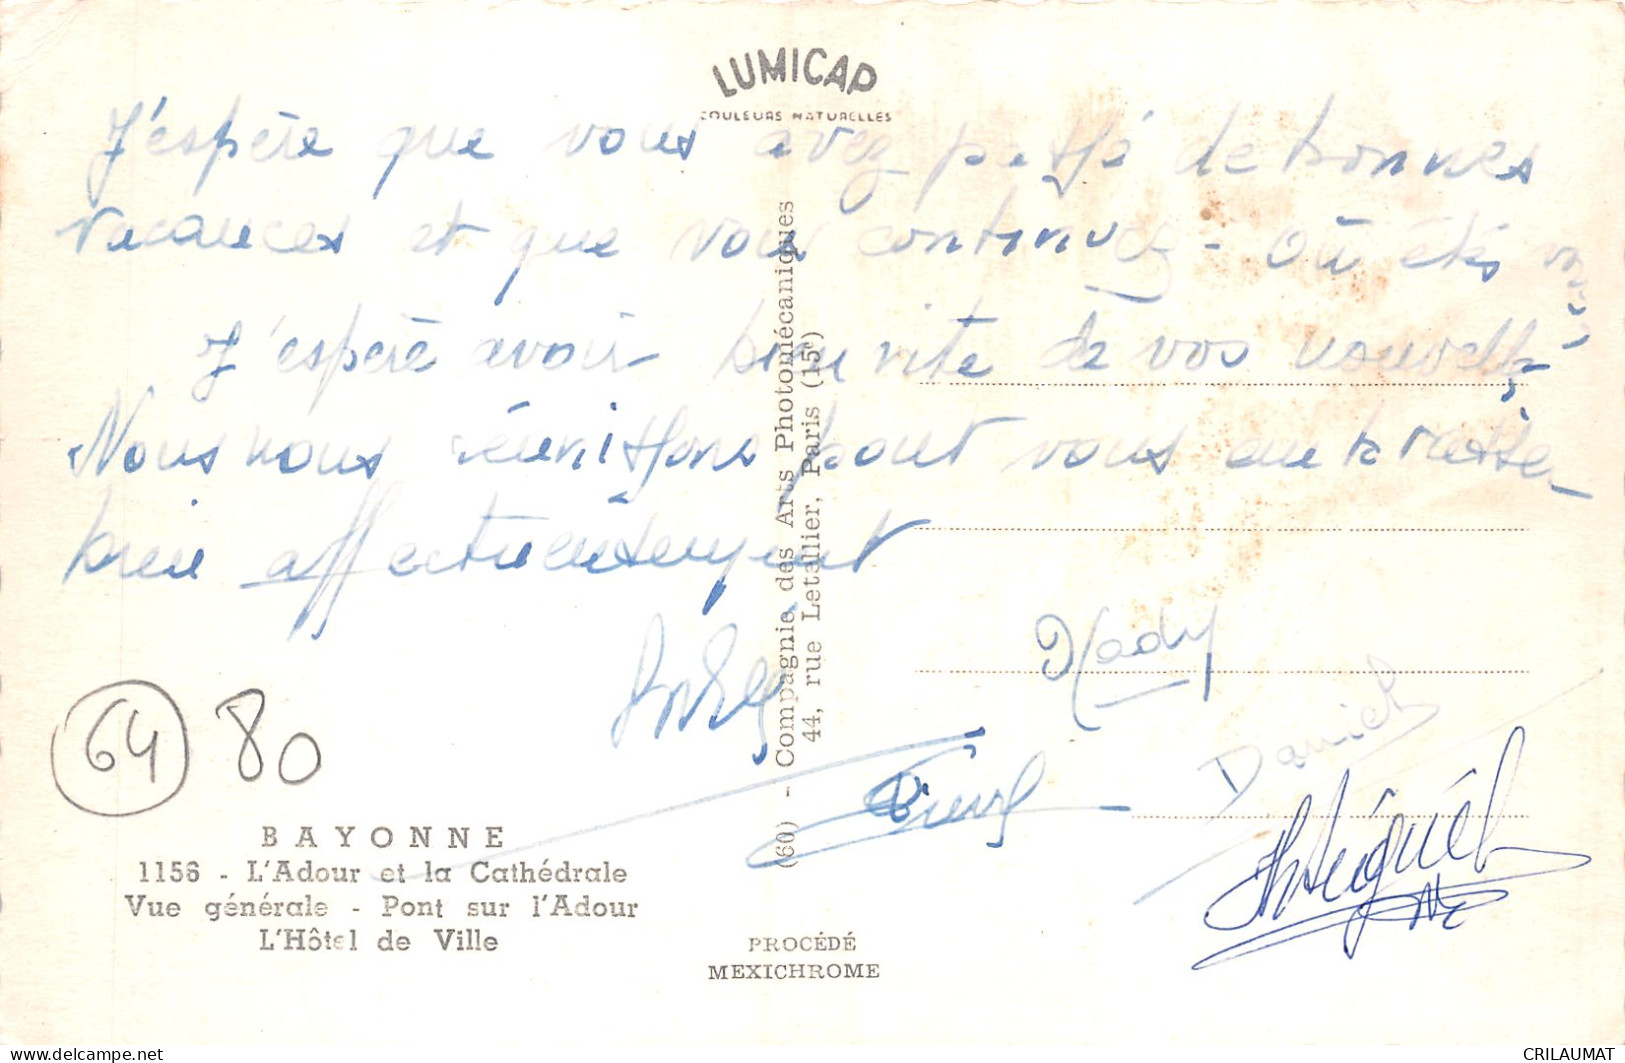 LUMICAP
COULEURS NATURELLES
J'espère que vous avez passé de bonnes
vacances et que vous continuez - où étés
J'espère avoir bien vite de vos nouvelles
Nous nous réunissons pour vous embrasser
bien affectueusement
Nady
Daniel
Pierre
64 80
BAYONNE
1156 - L'Adour et la Cathédrale
Vue générale - Pont sur l'Adour
L'Hôtel de Ville
(60) - Compagnie des Arts Photomécaniques
44, rue Letallier, Paris (15e)
PROCÉDÉ
MEXICHROME
CRILAUMAT